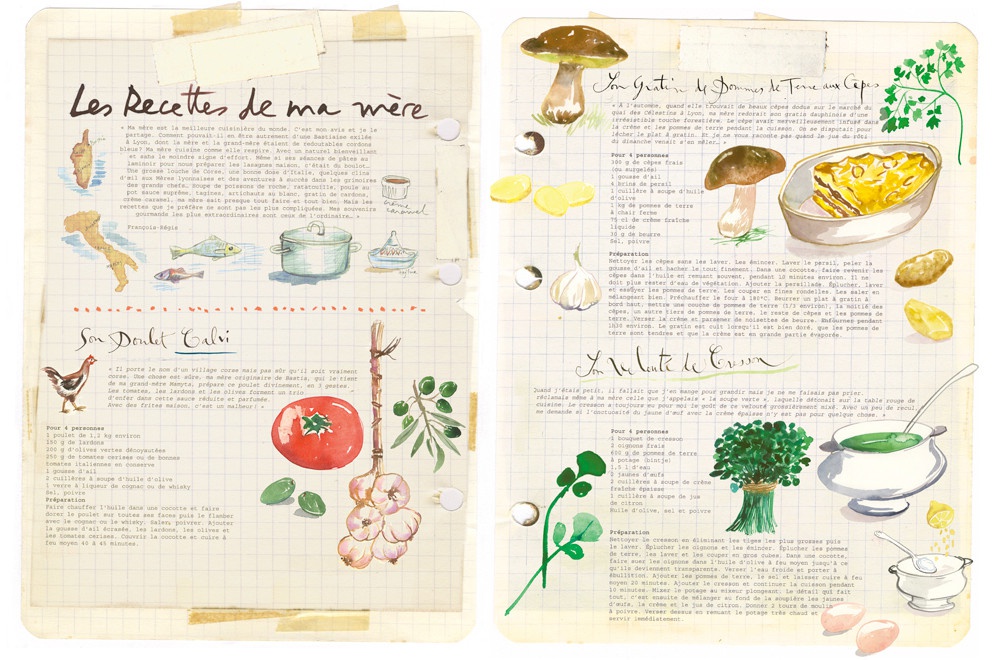 Les Recettes de ma mère
« Ma mère est la meilleure cuisinière du monde. C'est mon avis et je le
partage. Comment pouvait-il en être autrement d'une Bastiaise exilée
à Lyon, dont la mère et la grand-mère étaient de redoutables cordons
bleus! Ma mère cuisine comme elle respire. Avec un naturel bienveillant
et sans le moindre signe d'effort. Même si ses séances de pâtes au
laminoir pour nous préparer les lasagnes maison, c'était du boulot…
Une grosse louche de Corse, une bonne dose d'Italie, quelques clins
d'œil aux Mères lyonnaises et des aventures à succès dans les grimoires
des grands chefs. Soupe de poissons de roche, ratatouille, poule au
pot sauce suprême, tagines, artichauts au blanc, gratin de cardons,
crème caramel, ma mère sait presque tout faire et tout bien. Mais les
recettes que je préfère ne sont pas les plus compliquées. Mes souvenirs
gourmands les plus extraordinaires sont ceux de l'ordinaire. »
François-Régis
crème
caramel
Son Poulet Calvi
« Il porte le nom d'un village corse mais pas sûr qu'il soit vraiment
corse. Une chose est sûre, ma mère originaire de Bastia, qui le tient
de ma grand-mère Mamyta, prépare ce poulet divinement, en 3 gestes.
Les tomates, les lardons et les olives forment un trio
d'enfer dans cette sauce réduite et parfumée.
Avec des frites maison, c'est un malheur! »
Pour 4 personnes
1 poulet de 1,2 kg environ
150 g de lardons
200 g d'olives vertes dénoyautées
250 g de tomates cerises ou de bonnes
tomates italiennes en conserve
1 gousse d'ail
2 cuillères à soupe d'huile d'olive
1 verre à liqueur de cognac ou de whisky
Sel, poivre
Préparation
Faire chauffer l'huile dans une cocotte et faire
dorer le poulet sur toutes ses faces puis le flamber
avec le cognac ou le whisky. Saler, poivrer. Ajouter
la gousse d'ail écrasée, les lardons, les olives et
les tomates cerises. Couvrir la cocotte et cuire à
feu moyen 40 à 45 minutes.
Son Gratin de Pommes de Terre aux Cèpes
« À l'automne, quand elle trouvait de beaux cèpes dodus sur le marché du
quai des Célestins à Lyon, ma mère redorait aux gratin dauphinois d'une
irrésistible touche forestière. Le cèpe avait merveilleusement infusé dans
la crème et les pommes de terre pendant la cuisson. On se disputait pour
lécher le plat à gratin. Et je ne vous raconte pas quand le jus du rôti
du dimanche venait s'en mêler… »
Pour 4 personnes
100 g de cèpes frais
(ou surgelés)
1 gousse d'ail
4 brins de persil
1 cuillère à soupe d'huile
d'olive
1 kg de pommes de terre
à chair ferme
75 cl de crème fraîche
liquide
30 g de beurre
Sel, poivre
Préparation
Nettoyer les cèpes sans les laver. Les émincer. Laver le persil, peler la
gousse d'ail et hacher le tout finement. Dans une cocotte, faire revenir les
cèpes dans l'huile en remuant souvent, pendant 10 minutes environ. Il ne
doit plus rester d'eau de végétation. Ajouter la persillade. Éplucher, laver
et essuyer les pommes de terre. Les couper en fines rondelles. Les saler en
mélangeant bien. Préchauffer le four à 180°C. Beurrer un plat à gratin à
bord haut, mettre une couche de pommes de terre (1/3 environ), la moitié des
cèpes, un autre tiers de pommes de terre, le reste de cèpes et les pommes de
terre. Verser la crème et parsemer de noisettes de beurre. Enfourner pendant
1h30 environ. Le gratin est cuit lorsqu'il est bien doré, que les pommes de
terre sont tendres et que la crème est en grande partie évaporée.
Son Velouté de Cresson
Quand j'étais petit, il fallait que j'en mange pour grandir mais je ne me faisais pas prier.
réclamais même à ma mère celle que j'appelais « la soupe verte », laquelle détonait sur la table rouge de
cuisine. Le cresson a toujours eu pour moi le goût de ce velouté grossièrement mixé. Avec un peu de recul,
me demande si l'onctuosité du jaune d'œuf avec la crème épaisse n'y est pas pour quelque chose. »
Pour 4 personnes
1 bouquet de cresson
2 oignons frais
600 g de pommes de terre
à potage (bintje)
1,5 l d'eau
2 jaunes d'œufs
2 cuillères à soupe de crème
fraîche épaisse
1 cuillère à soupe de jus
de citron
Huile d'olive, sel et poivre
Préparation
Nettoyer le cresson en éliminant les tiges les plus grosses puis
le laver. Éplucher les oignons et les émincer. Éplucher les pommes
de terre, les laver et les couper en gros cubes. Dans une cocotte,
faire suer les oignons dans l'huile d'olive à feu moyen jusqu'à ce
qu'ils deviennent transparents. Verser l'eau froide et porter à
ébullition. Ajouter les pommes de terre, le sel et laisser cuire à feu
moyen 20 minutes. Ajouter le cresson et continuer la cuisson pendant
10 minutes. Mixer le potage au mixeur plongeant. Le détail qui fait
tout, c'est ensuite de mélanger au fond de la soupière les jaunes
d'œufs, la crème et le jus de citron. Donner 2 tours de moulin
à poivre. Verser dessus en remuant le potage très chaud et
servir immédiatement.